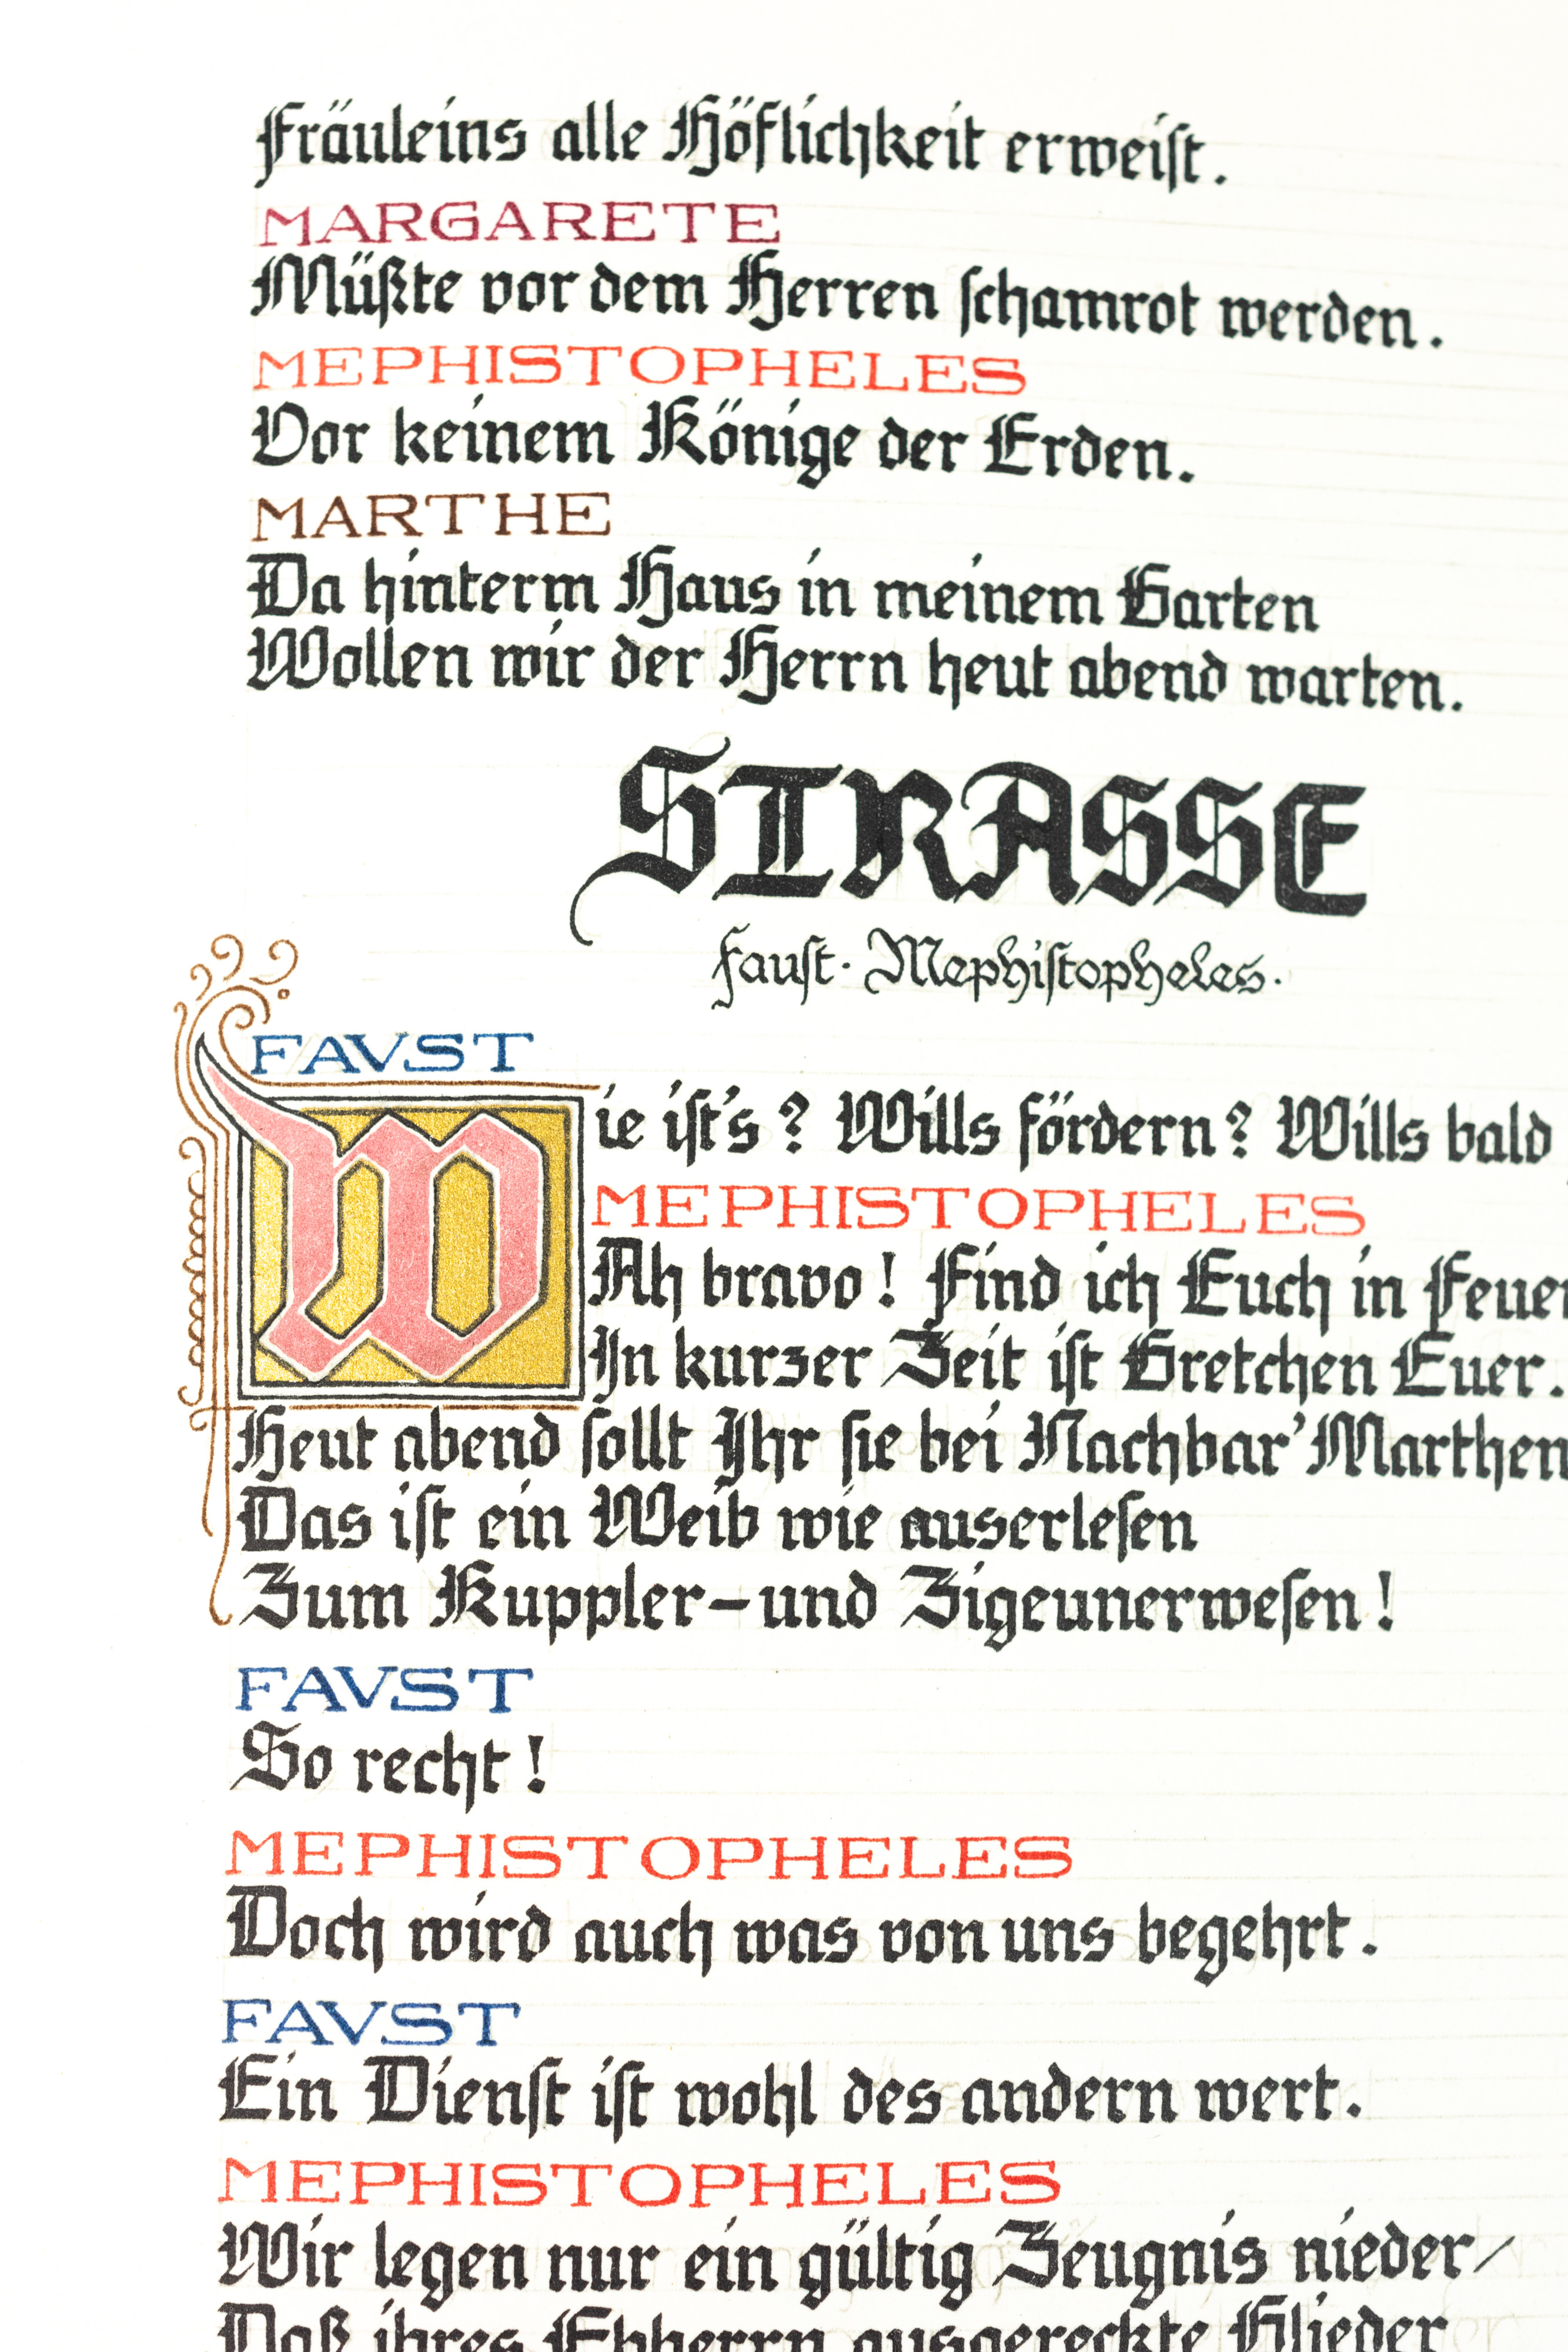 Fräuleins alle Höflichkeit erweiſt.
MARGARETE
Müßte vor dem Herren ſchamrot werden.
MEPHISTOPHELES
Vor keinem Könige der Erden.
MARTHE
Da hinterm Haus in meinem Garten
Wollen wir der Herrn heut abend warten.
STRASSE
Fauſt. Mephiſtopheles.
FAVST
Wie iſt's? Wills fördern? Wills bald
MEPHISTOPHELES
Ah bravo! Find ich Euch in Feuer
In kurzer Zeit iſt Gretchen Euer.
Heut abend ſollt Ihr ſie bei Nachbar' Marthen
Das iſt ein Weib wie auserleſen
Zum Kuppler-und Zigeunerweſen!
FAVST
So recht!
MEPHISTOPHELES
Doch wird auch was von uns begehrt.
FAVST
Ein Dienſt iſt wohl des andern wert.
MEPHISTOPHELES
Wir legen nur ein gültig Zeugnis nieder/
Daß ihres Ehherrn ausgereckte Glieder